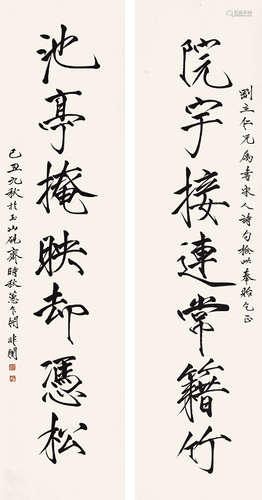 劉立仁兄属書宋人詩句撿此奉貽乞正
院宇接連常籍竹
池亭掩映却憑松
己丑九秋於玉山硯齋時秋蕙乍開非闇